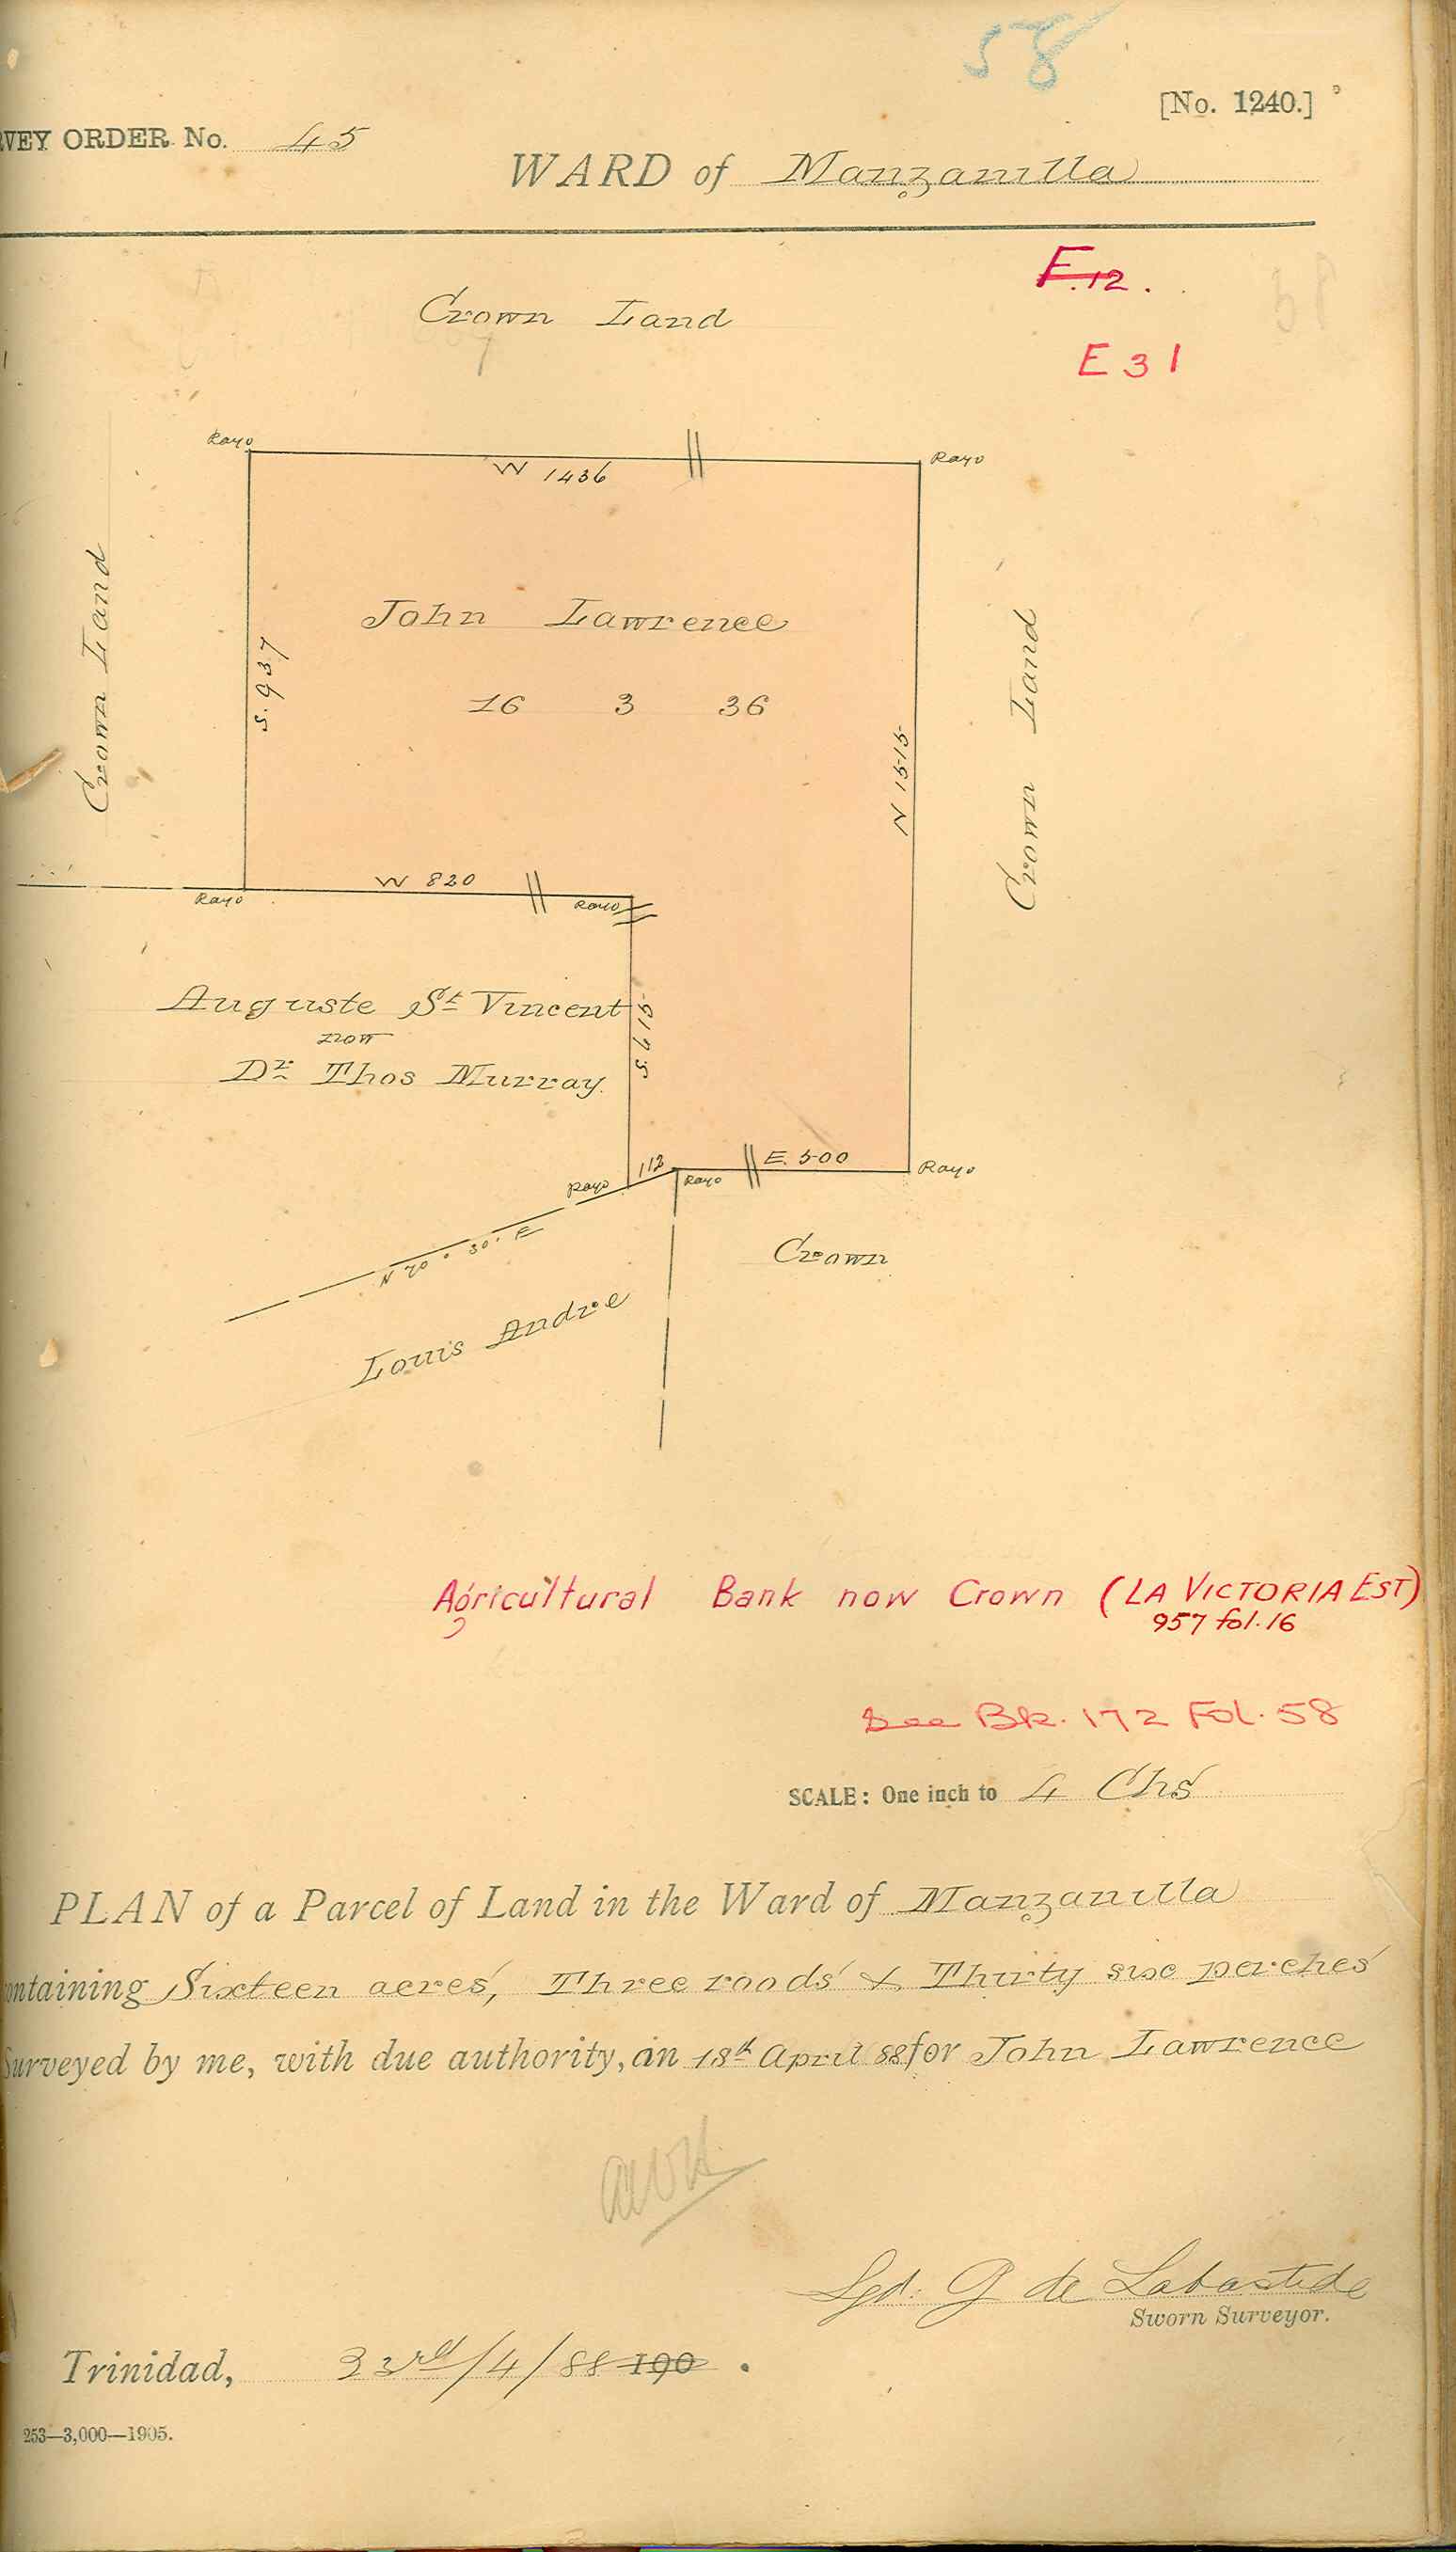 58
[No. 1240.]
VEY ORDER No. 45
WARD of Manzanilla
F.12.
E 31
Crown Land
Rayo
Rayo
W 1436
Crown Land
John Lawrence
S. 937
16 3 36
N 1515
Crown Land
W 820
Rayo
Rayo
Auguste St Vincent
now
Dr Thos Murray.
S. 615
112
E. 500
Rayo
Rayo
Rayo
N 70° 30' E
Crown
Louis Andre
Agricultural Bank now Crown (LA VICTORIA EST)
957 fol. 16
See Bk. 172 Fol. 58
SCALE: One inch to 4 Chs
PLAN of a Parcel of Land in the Ward of Manzanilla
ontaining Sixteen acres, Three roods & Thirty six perches
Surveyed by me, with due authority, on 18th April 88 for John Lawrence
Sgd. G de Labastide
Sworn Surveyor.
Trinidad, 23rd/4/88 190 .
253—3,000—1905.